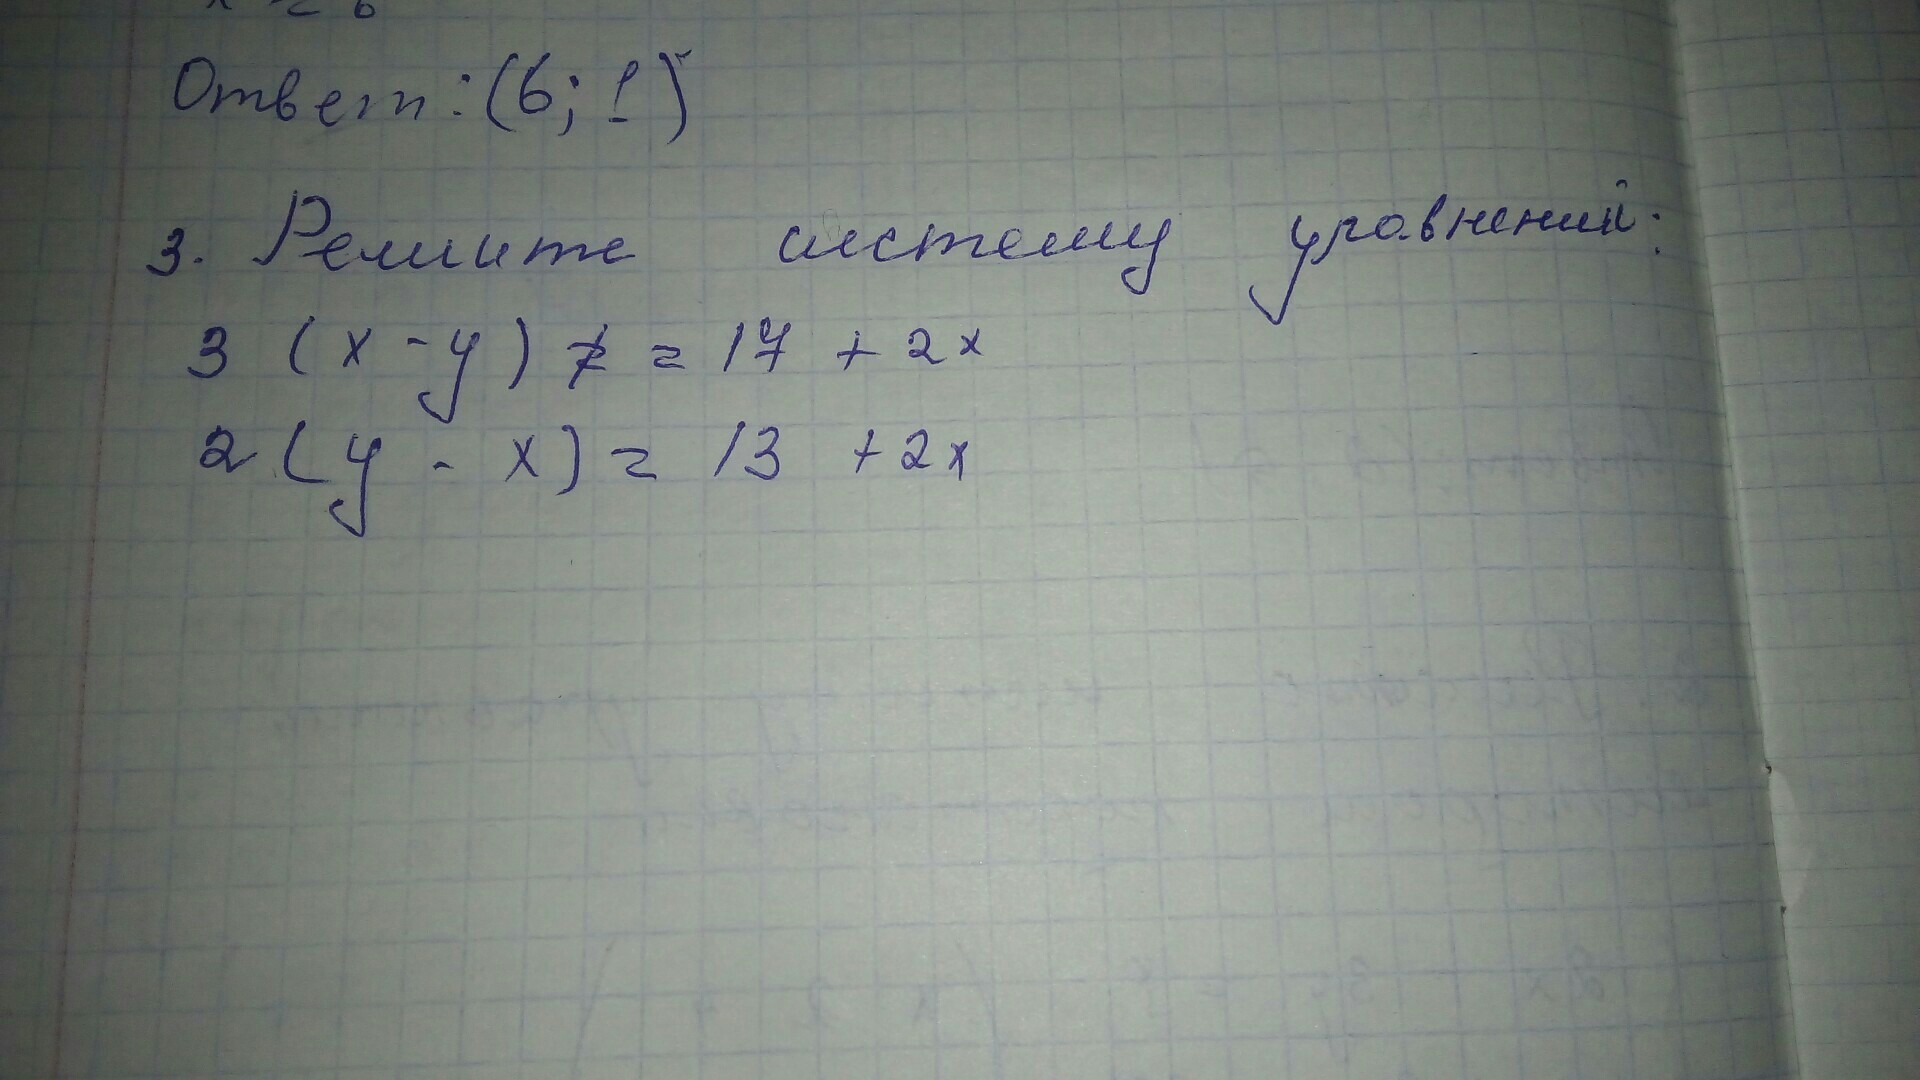 x = 6
Ответ: (6; 1)
3. Решите систему уравнений:
3 (x - y) = 17 + 2x
2 (y - x) = 13 + 2x